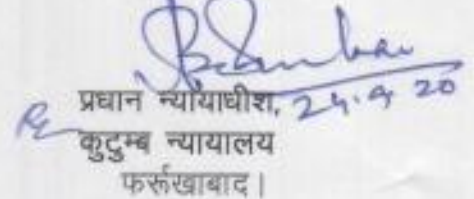 प्रधान न्यायाधीश, 24.9.20
कुटुम्ब न्यायालय
फर्रूखाबाद।